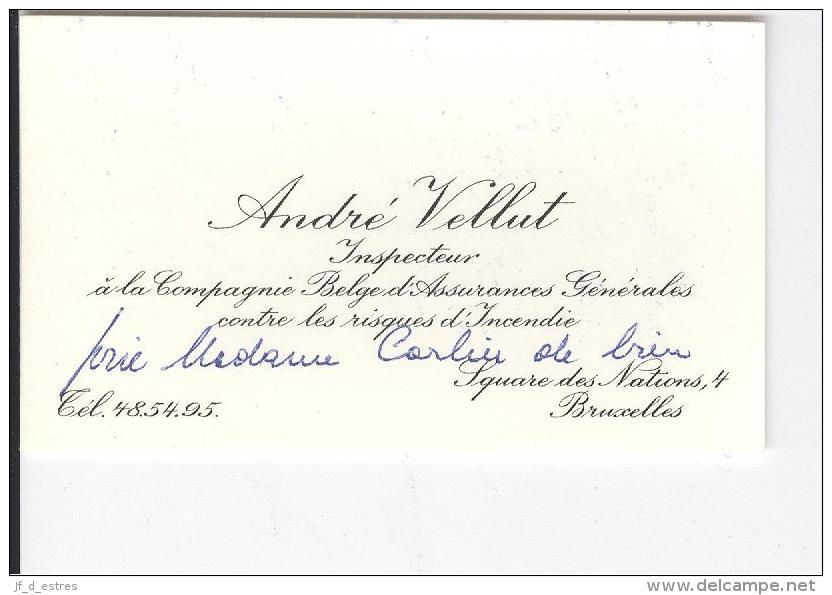 André Vellut
Inspecteur
à la Compagnie Belge d'Assurances Générales
contre les risques d'Incendie
prie Madame Carlier de bien
Square des Nations, 4
Tél. 48.54.95.
Bruxelles
jf_d_estres
www.delcampe.net